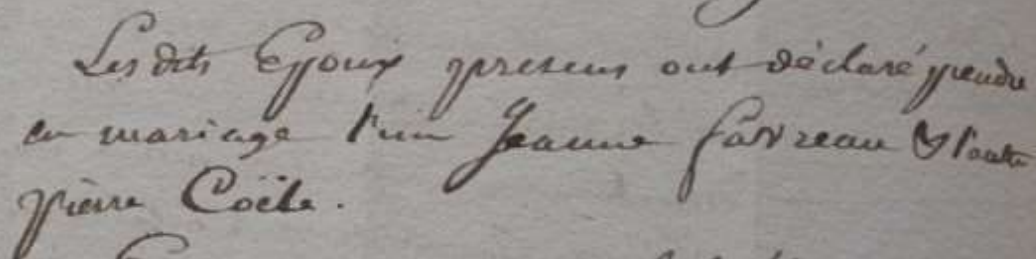 Les dits Epoux presens ont déclaré prendre
en mariage l'un Jeanne favreau & l'autre
pierre Coëtte.